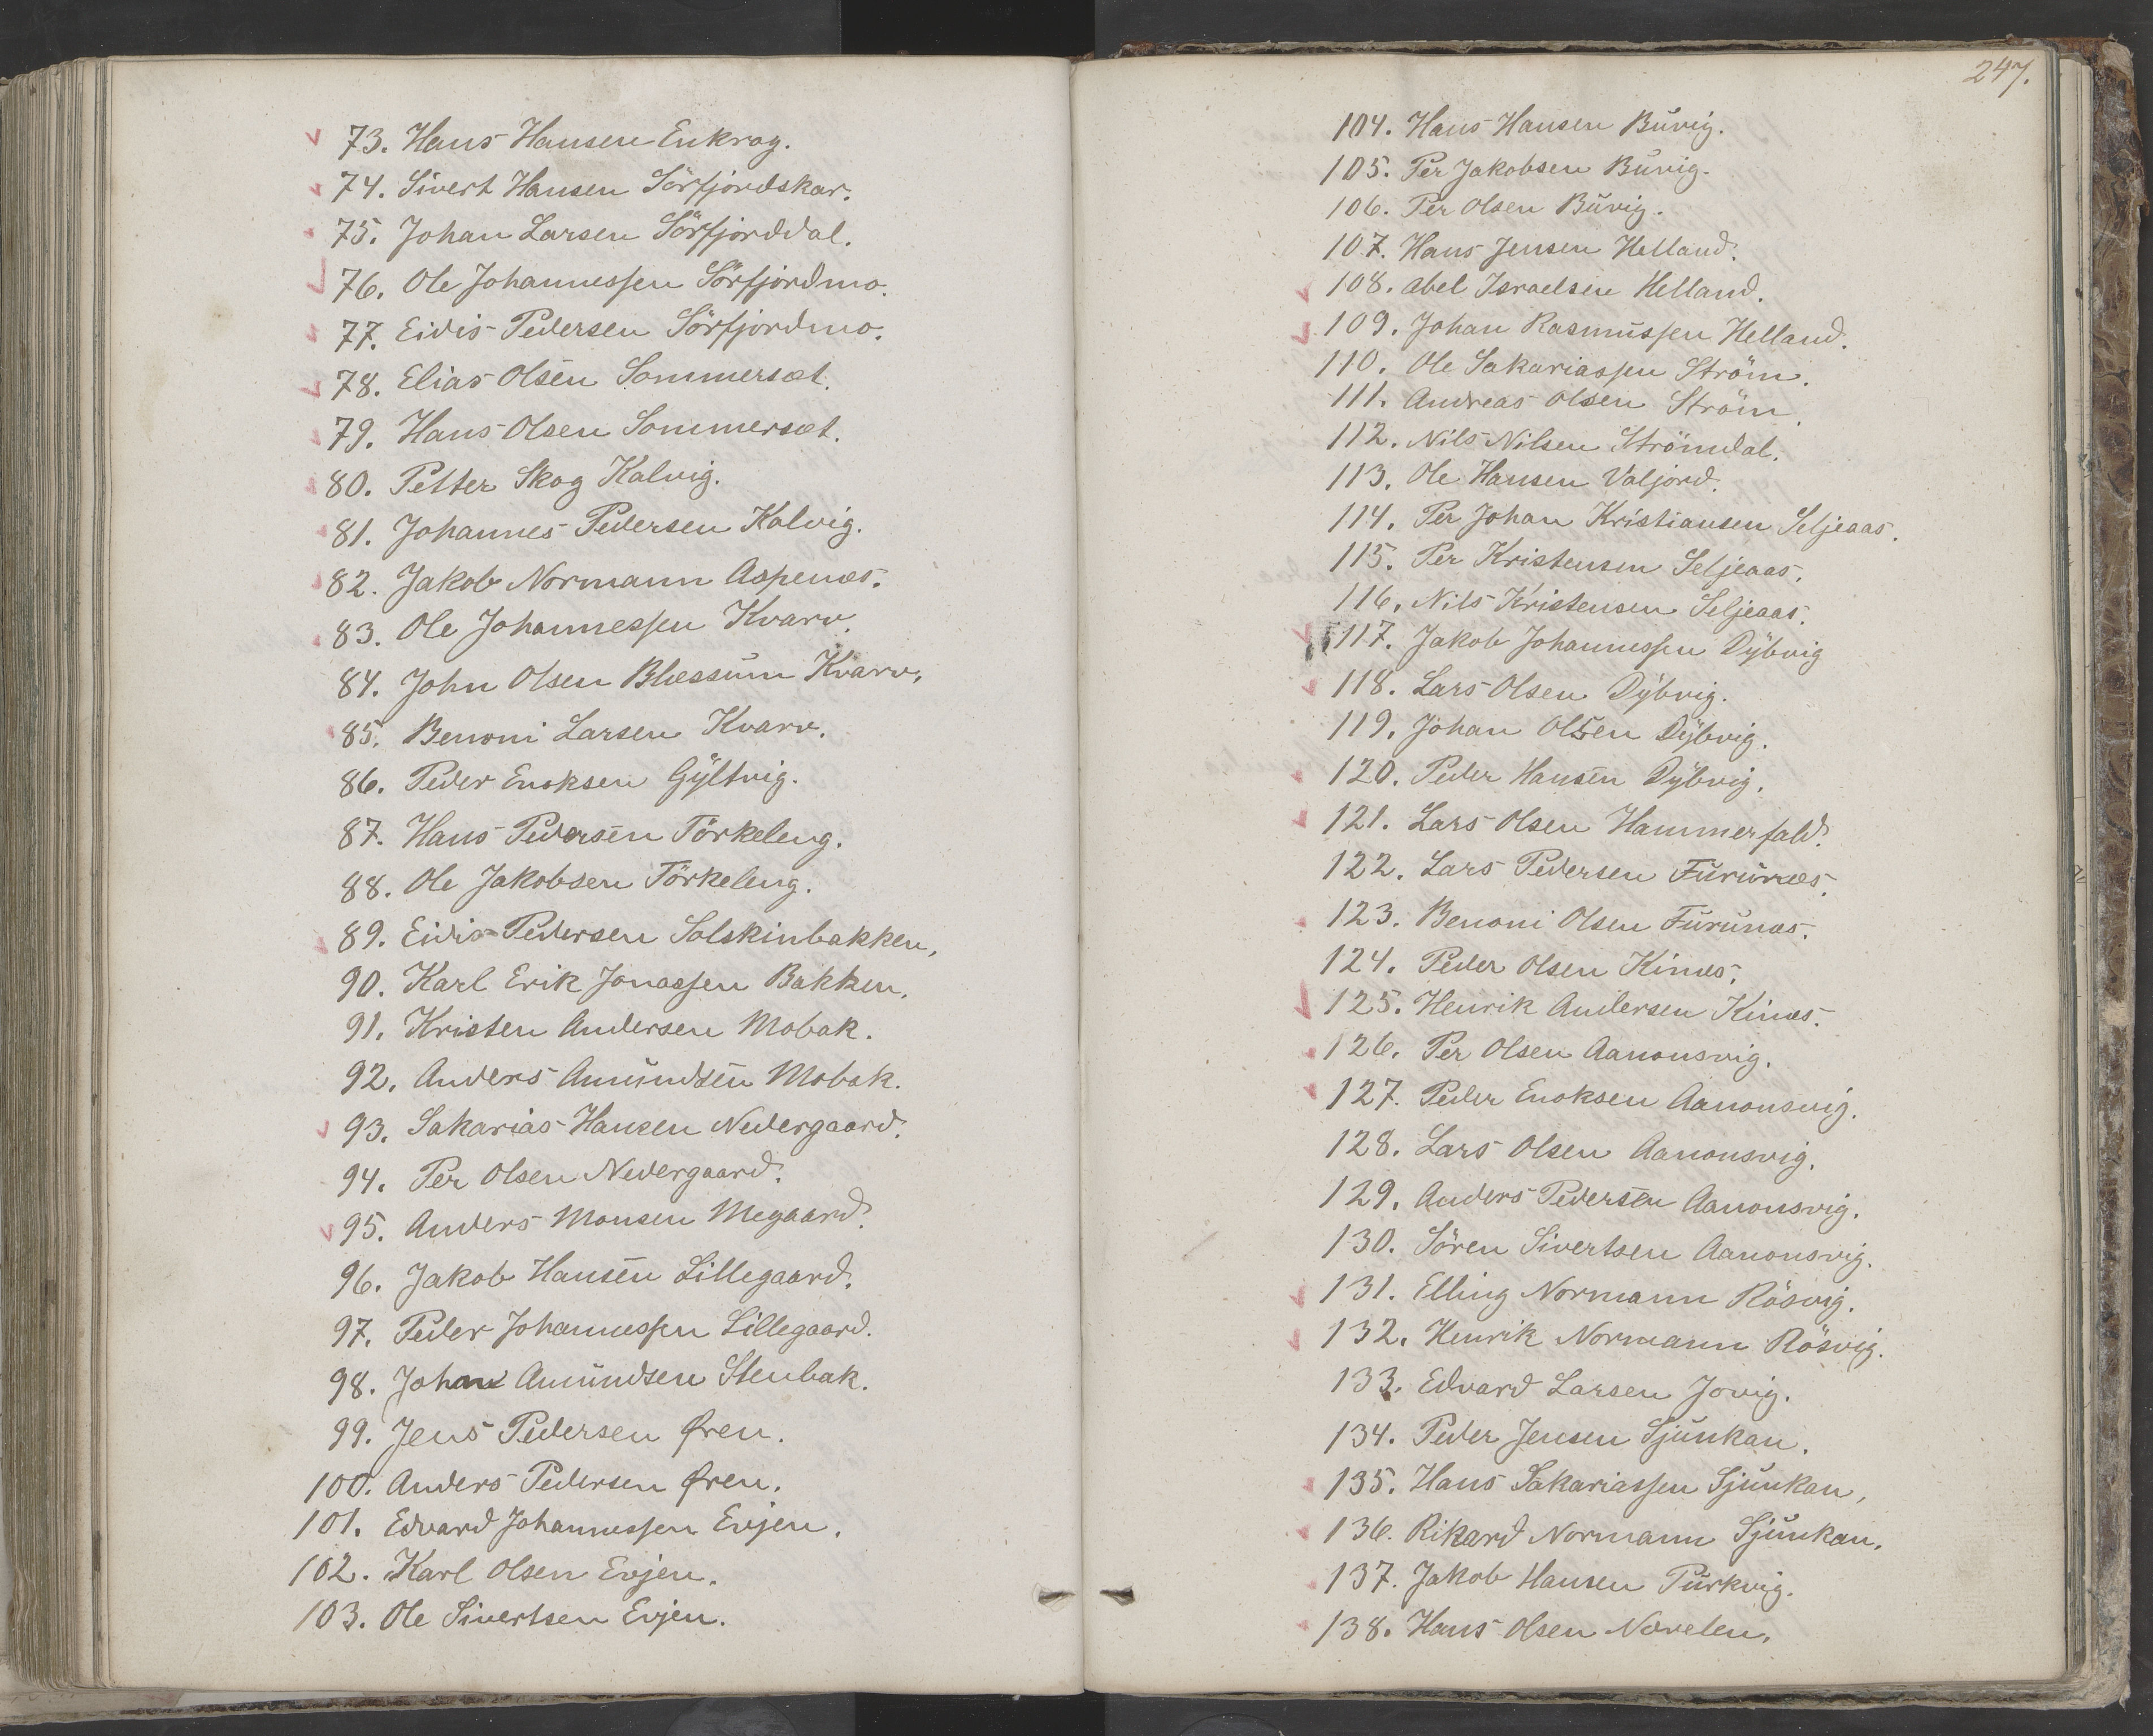 73. Hans Hansen Enkrog.
74. Sivert Hansen Sörfjordskar.
75. Johan Larsen Sörfjorddal.
76. Ole Johannessen Sörfjordmo.
77. Eidis Pedersen Sörfjordmo.
78. Elias Olsen Sommersæt.
79. Hans Olsen Sommersæt.
80. Petter Skog Kalvig.
81. Johannes Pedersen Kalvig.
82. Jakob Normann Aspenæs.
83. Ole Johannessen Kvarv.
84. John Olsen Blessum Kvarv.
85. Benoni Larsen Kvarv.
86. Peder Enoksen Gyltvig.
87. Hans Pedersen Törkeleng.
88. Ole Jakobsen Törkeleng.
89. Eidis Pedersen Solskinbakken.
90. Karl Erik Jonassen Bakken.
91. Kristen Andersen Mobak.
92. Anders Amundsen Mobak.
93. Sakarias Hansen Nedergaard.
94. Per Olsen Nedergaard.
95. Anders Monsen Megaard.
96. Jakob Hansen Lillegaard.
97. Peder Johannessen Lillegaard.
98. Johan Amundsen Stenbak.
99. Jens Pedersen Øren.
100. Anders Pedersen Øren.
101. Edvard Johannessen Evjen.
102. Karl Olsen Evjen.
103. Ole Sivertsen Evjen.
247.
104. Hans Hansen Buvig.
105. Per Jakobsen Buvig.
106. Per Olsen Buvig.
107. Hans Jensen Helland.
108. Abel Israelsen Helland.
109. Johan Rasmussen Helland.
110. Ole Sakariassen Ström.
111. Andreas Olsen Ström.
112. Nils Nilsen Strömdal.
113. Ole Hansen Valjord.
114. Per Johan Kristiansen Seljeaas.
115. Per Kristensen Seljeaas.
116. Nils Kristensen Seljeaas.
117. Jakob Johannessen Dybvig
118. Lars Olsen Dybvig.
119. Johan Olsen Dybvig.
120. Peder Hansen Dybvig.
121. Lars Olsen Hammerfald.
122. Lars Pedersen Furunæs.
123. Benoni Olsen Furunæs.
124. Peder Olsen Kinæs.
125. Henrik Andersen Kinæs.
126. Per Olsen Aanonsvig.
127. Peder Enoksen Aanonsvig.
128. Lars Olsen Aanonsvig.
129. Anders Pedersen Aanonsvig.
130. Sören Sivertsen Aanonsvig.
131. Elling Normann Rösvig.
132. Henrik Normann Rösvig.
133. Edvard Larsen Jovig.
134. Peder Jensen Sjunkan.
135. Hans Sakariassen Sjunkan,
136. Rikard Normann Sjunkan.
137. Jakob Hansen Purkvig.
138. Hans Olsen Nævelen.